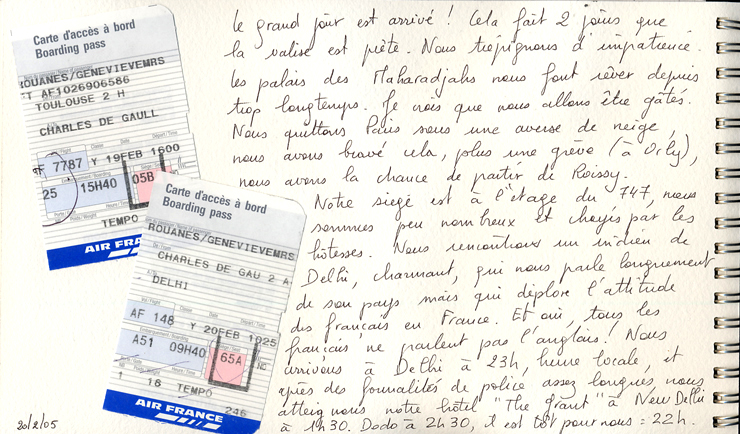 Carte d'accès à bord
Boarding pass
ROUANES/GENEVIEVEMRS
ET AF1026906586
TOULOUSE 2 H
CHARLES DE GAULL
AF 7787 Y 19FEB 1600
25 15H40 05B
TEMPO
AIR FRANCE
Carte d'accès à bord
Boarding pass
ROUANES/GENEVIEVEMRS
CHARLES DE GAU 2 A
DELHI
AF 148 Y 20FEB 1025
A51 09H40 65A
1 16 TEMPO
246
AIR FRANCE
20/2/05
Le grand jour est arrivé ! Cela fait 2 jours que
la valise est prête. Nous trépignons d'impatience.
Les palais des Maharadjahs nous font rêver depuis
trop longtemps. Je crois que nous allons être gâtés.
Nous quittons Paris sous une averse de neige,
nous avons bravé cela, plus une grève (à Orly),
nous avons la chance de partir de Roissy.
Notre siège est à l'étage du 747, nous
sommes peu nombreux et choyés par les
hôtesses. Nous rencontrons un indien de
Delhi, charmant, qui nous parle longuement
de son pays mais qui déplore l'attitude
des français en France. Et oui, tous les
français ne parlent pas l'anglais ! Nous
arrivons à Delhi à 23h, heure locale, et
après des formalités de police assez longues, nous
atteignons notre hôtel "The Grant" à New Delhi
à 1h30. Dodo à 2h30, il est tôt pour nous : 22h.